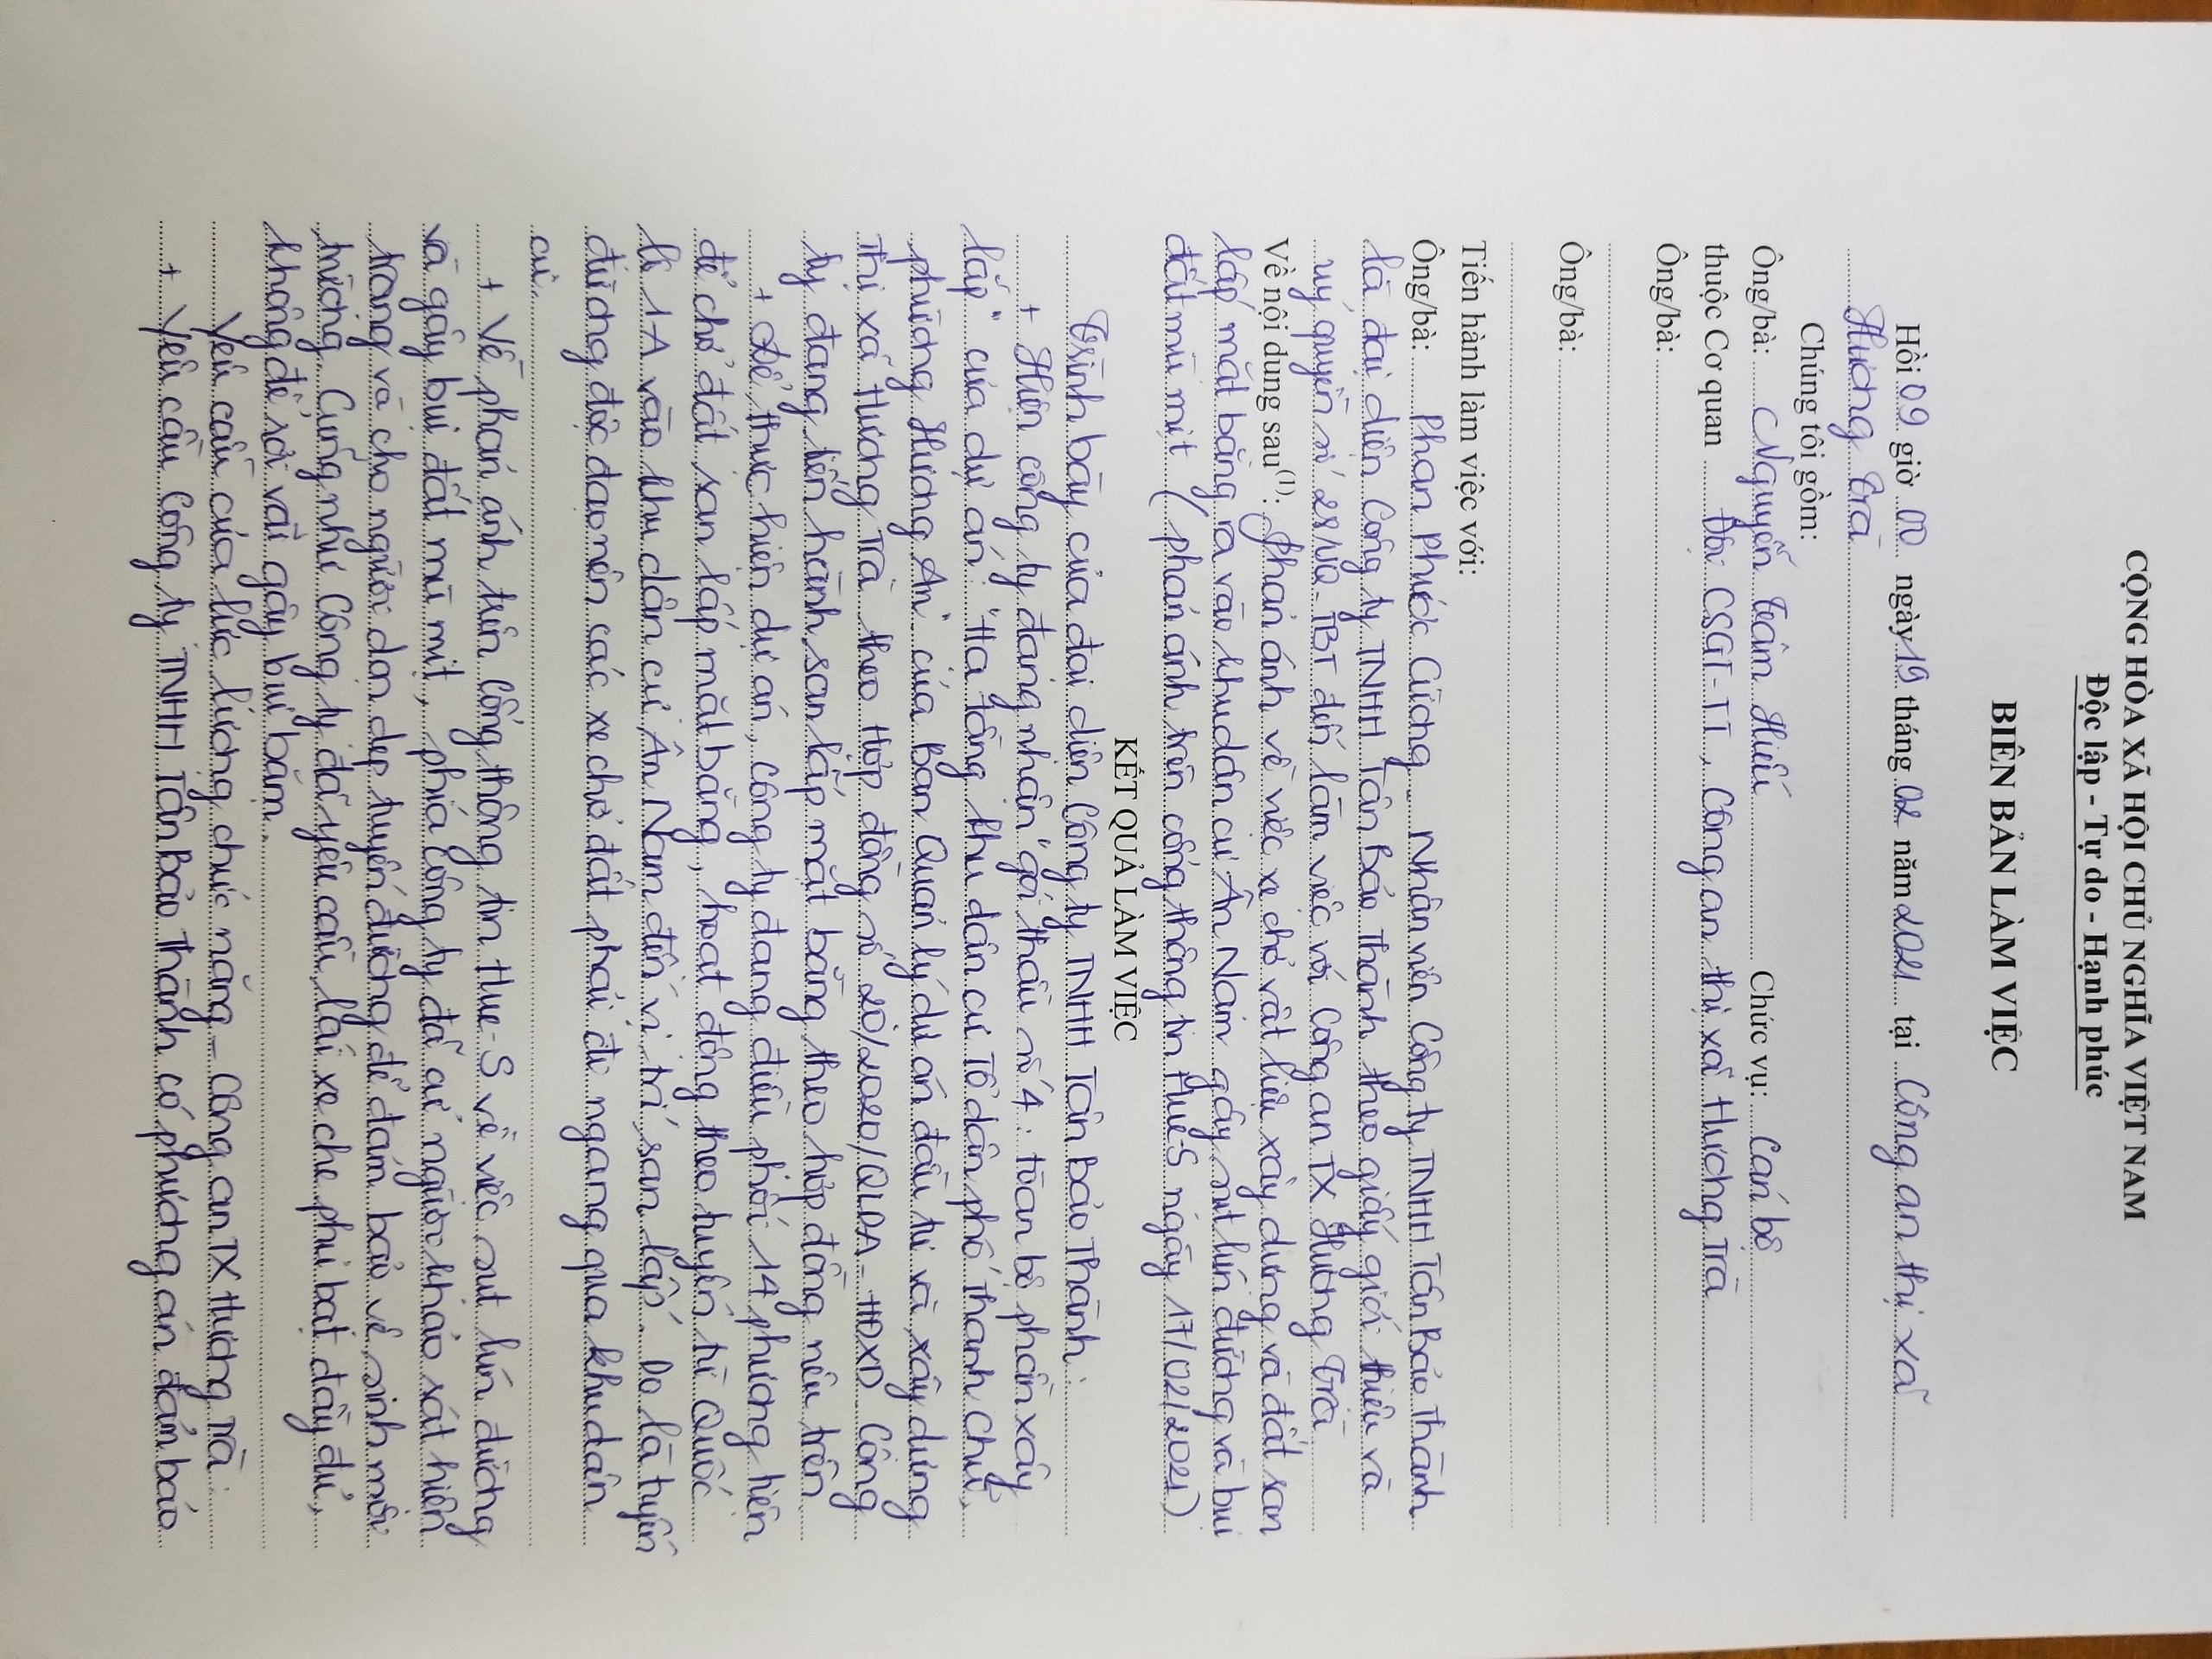 CỘNG HÒA XÃ HỘI CHỦ NGHĨA VIỆT NAM
Độc lập - Tự do - Hạnh phúc
BIÊN BẢN LÀM VIỆC
Hồi 09 giờ 00 ngày 19 tháng 02 năm 2021 tại Công an thị xã
Hương Trà
Chúng tôi gồm:
Ông/bà: Nguyễn Trâm Hiếu Chức vụ: Cán bộ
thuộc Cơ quan Đội CSGT-TT, Công an thị xã Hương Trà
Ông/bà:
Ông/bà:
Tiến hành làm việc với:
Ông/bà: Phan Phước Cường - Nhân viên Công ty TNHH Tân Bảo Thành
là đại diện Công ty TNHH Tân Bảo Thành theo giấy giới thiệu và
uỷ quyền số - TBT đến làm việc với Công an TX Hương Trà
Về nội dung sau(1): Phản ánh về việc xe chở vật liệu xây dựng và đất san
lấp mặt bằng ra vào khu dân cư Ân Nam gây sụt lún đường và bụi
đất mù mịt (phản ánh trên cổng thông tin Huế-S ngày 17/02/2021)
KẾT QUẢ LÀM VIỆC
Trình bày của đại diện Công ty TNHH Tân Bảo Thành:
+ Hiện công ty đang nhận "gói thầu số 4: toàn bộ phần xây
lắp" của dự án: "Hạ tầng khu dân cư Tổ dân phố Thanh Chữ,
phường Hương An" của Ban Quản lý dự án đầu tư và xây dựng
Thị xã Hương Trà theo Hợp đồng số 20/2020/QLDA-HĐXD Công
ty đang tiến hành san lấp mặt bằng theo hợp đồng nêu trên
+ Để thực hiện dự án, Công ty đang điều phối 14 phương tiện
để chở đất san lấp mặt bằng, hoạt động theo tuyến từ Quốc
lộ 1A vào khu dân cư Ân Nam đến vị trí san lấp. Do là tuyến
đường độc đạo nên các xe chở đất phải đi ngang qua khu dân
cư.
+ Về phản ánh trên Cổng thông tin Hue-S về việc sụt lún đường
và gây bụi đất mù mịt, phía Công ty đã cử người khảo sát hiện
trạng và cho người dọn dẹp tuyến đường để đảm bảo vệ sinh môi
trường. Cũng như Công ty đã yêu cầu lái xe che phủ bạt đầy đủ,
không để rơi vãi gây bụi bặm.
Yêu cầu của lực lượng chức năng - Công an TX Hương Trà:
+ Yêu cầu Công ty TNHH Tân Bảo Thành có phương án đảm bảo